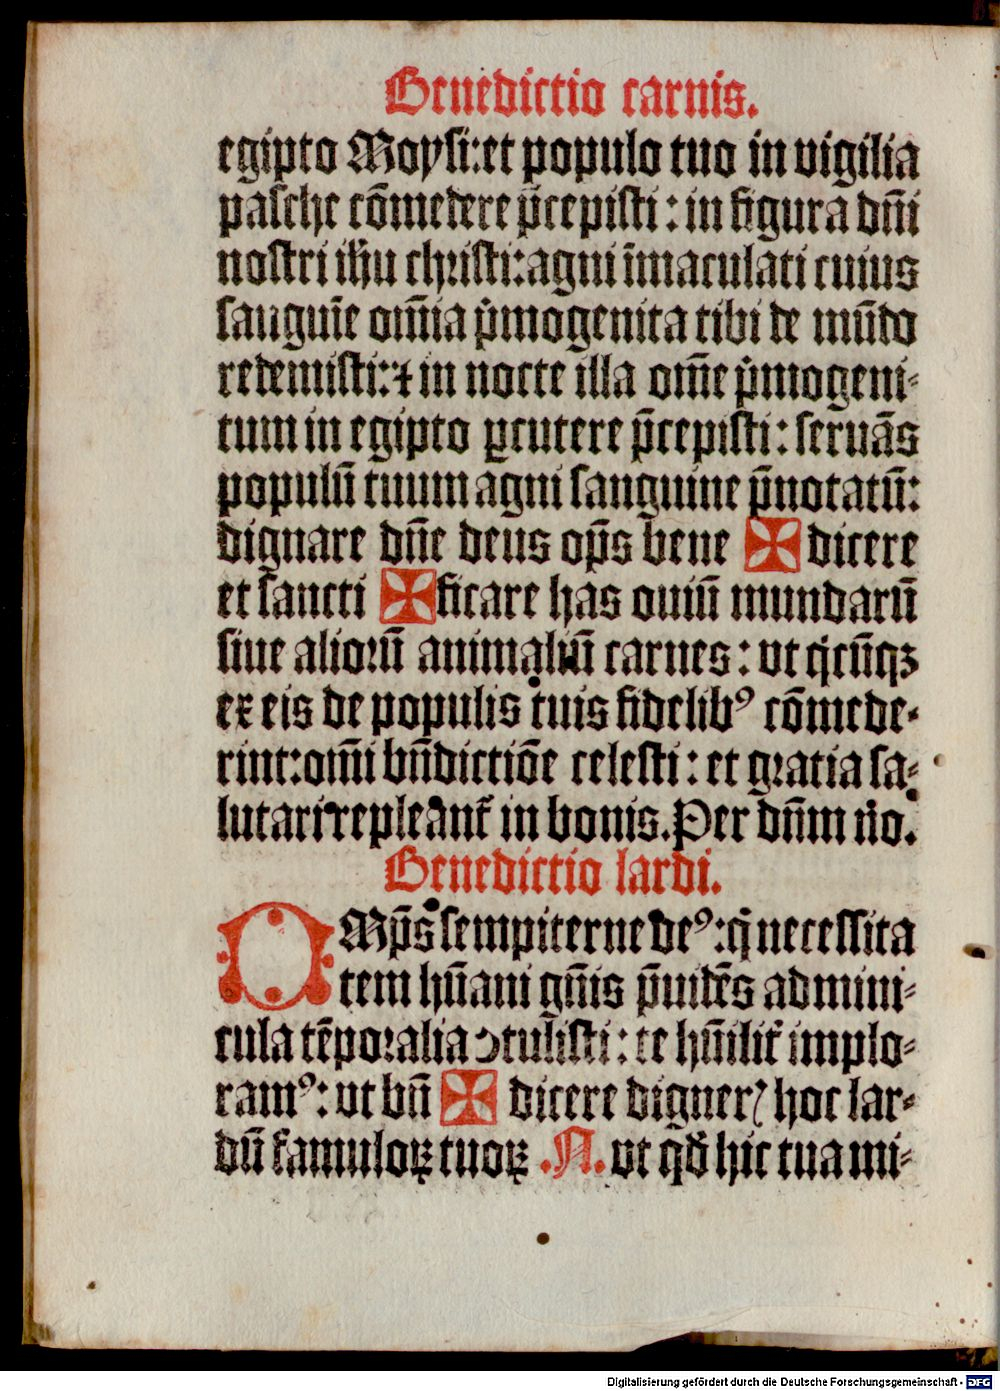 Benedictio carnis.
egipto Moysi: et populo tuo in vigilia
pasche cōmedere p̄cepisti: in figura dn̄i
nostri ih̄u christi: agni īmaculati cuius
sanguīe om̄ia p̓mogenita tibi de mūdo
redemisti: ⁊ in nocte illa om̄e p̓mogeni⸗
tum in egipto ꝑcutere p̄cepisti: seruās
populū tuum agni sanguine p̄notatū:
dignare dn̄e deus op̄s bene ✠ dicere
et sancti ✠ ficare has ouiū mundarū
siue aliorū animaliū carnes: vt q̓cūqꝫ
ex eis de populis tuis fidelibꝰ cōmede⸗
rint: om̄i bn̄dictiōe celesti: et gratia sa⸗
lutari repleānt᷑ in bonis. Per dn̄m n̄o.
Benedictio lardi.
OMp̄s sempiterne deꝰ: q̓ necessita
tem hūani gn̄is p̄uidēs admini⸗
cula tēporalia ↄtulisti: te hūilit᷑ implo⸗
ramꝰ: vt bn̄ ✠ dicere digner̉ hoc lar⸗
dū famuloꝝ tuoꝝ .N. vt qd̄ hic tua mi⸗
Digitalisierung gefördert durch die Deutsche Forschungsgemeinschaft - DFG